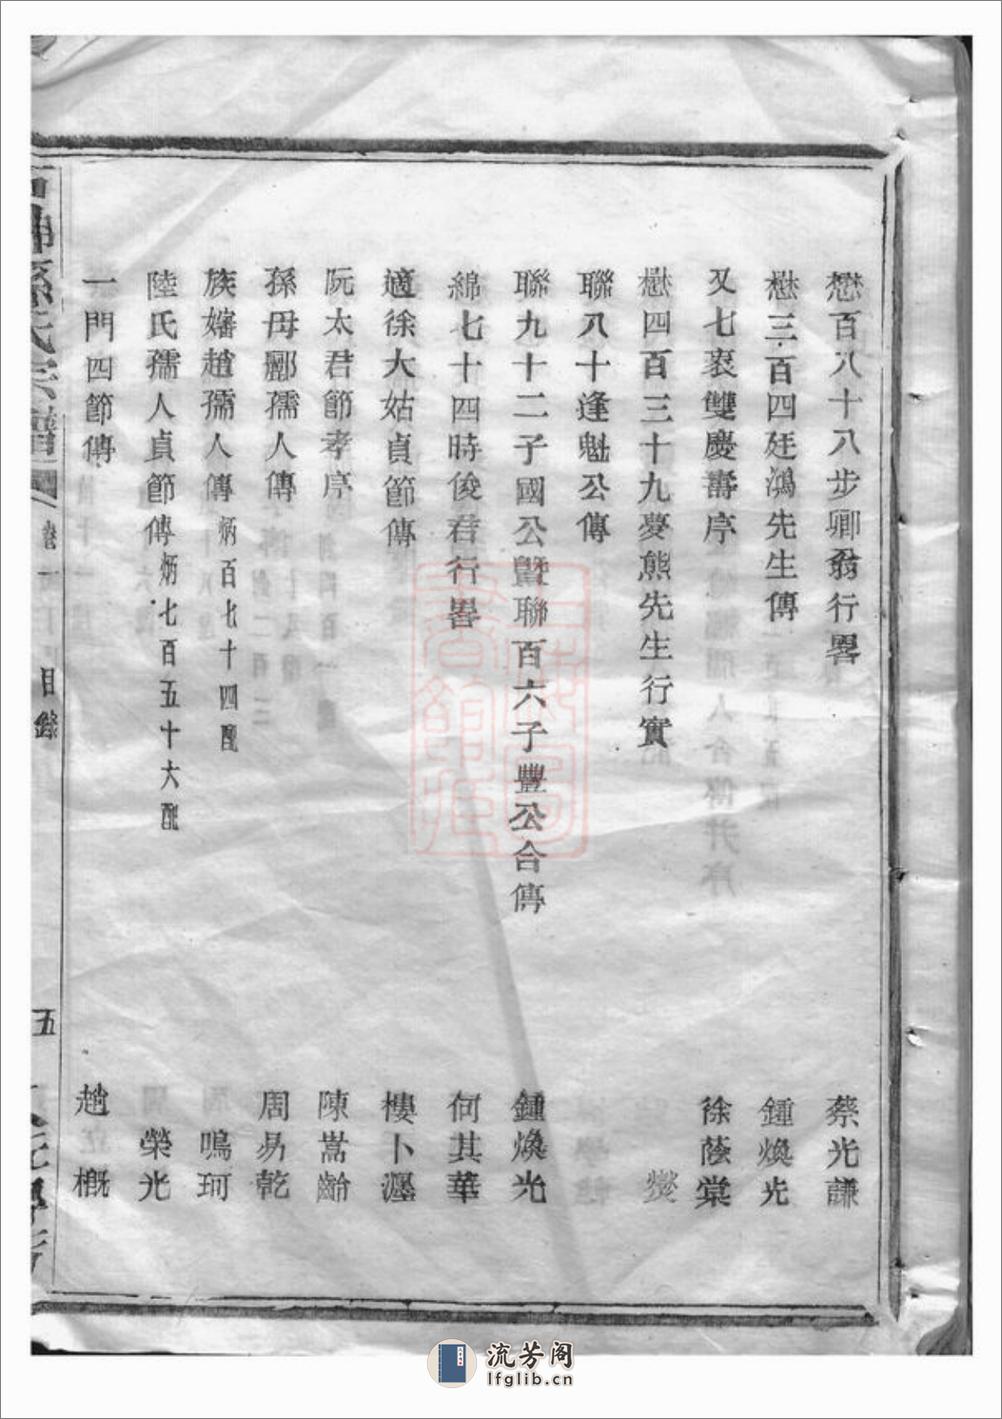 懋百八十八步卿翁行畧 蔡光謙
懋三百四廷鴻先生傳 鍾煥光
又七袠雙慶壽序 徐蔭棠
懋四百三十九夢熊先生行實 燮
聯八十逢魁公傳
聯九十二子國公曁聯百六子豐公合傳 鍾煥光
綿七十四時俊君行畧 何其華
適徐大姑貞節傳 樓卜瀍
阮太君節孝序 陳嵩齡
孫母酈孺人傳 周易乾
族嬸趙孺人傳炳百七十四配 鳴珂
陸氏孺人貞節傳炳七百五十六配 榮光
一門四節傳 趙槪
孫氏宗譜 卷一 目錄 五
流芳阁
lfglib.cn